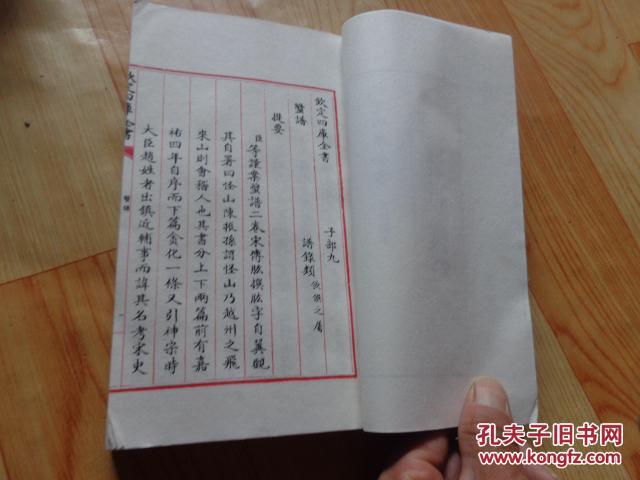 欽定四庫全書
子部九
蟹譜
譜錄類 飲饌之屬
提要
臣等謹案蟹譜二卷宋傅肱撰肱字自翼觀
其自署曰怪山陳振孫謂怪山乃越州之飛
來山則會稽人也其書分上下兩篇前有嘉
祐四年自序而下篇貪化一條又引神宗時
大臣趙姓者出鎮近輔事而諱其名考宋史
欽定四庫全書
蟹譜
孔夫子旧书网
www.kongfz.com